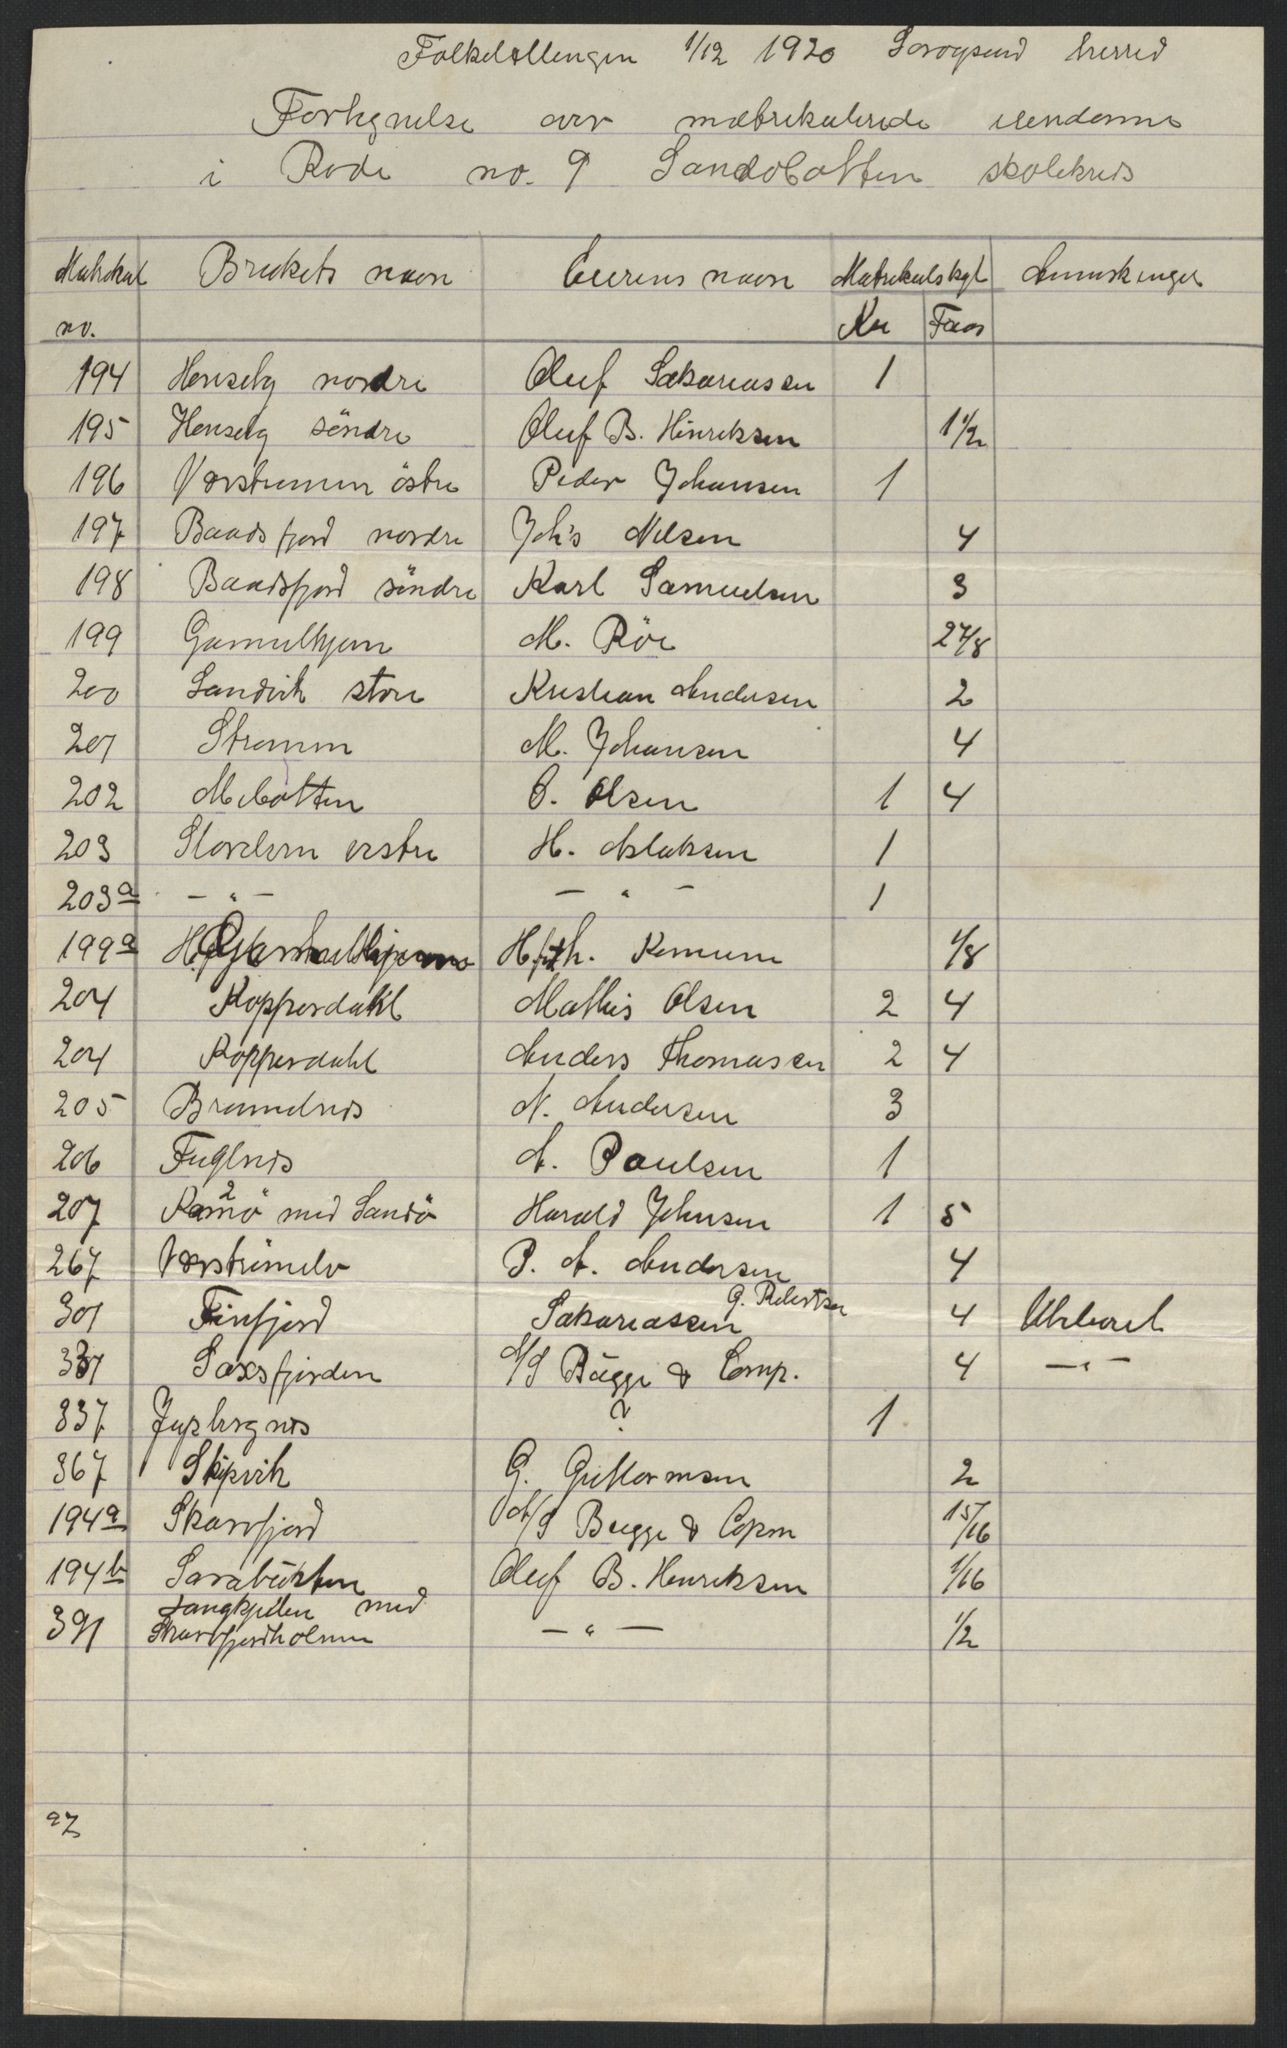 Folketellingen 1/12 1920 Sørøysund herred
Fortegnelse over matrikulerede eiendomme
i Rode no. 9 Sandøbotten skolekreds
Matrikul no. Brukets navn Eierens navn Matrikulskyl Anmerkninger
Kr Øre
194 Hønseby nordre Oluf Sakariassen 1
195 Hønseby söndre Oluf B. Hinriksen 1 1/2
196 Värströmmen östre Peder Johansen 1
197 Baadsfjord nordre Joh's Nilsen 4
198 Baadsfjord söndre Karl Samuelsen 3
199 Gamvelhjem M. Röe 2 7/8
200 Sandvik store Kristian Andersen 2
201 Strømmen M. Johansen 4
202 Mebotten O. Olsen 1 4
203 Storelven vestre H. Aslaksen 1
203a — " — — " — 1
199a Gamvelhjem H.fest h. Komune 1/8
204 Kopperdahl Mathis Olsen 2 4
204 Kopperdahl Anders Thomassen 2 4
205 Bremelnes N. Andersen 3
206 Fuglnes A. Paulsen 1
207 Kamö med Sandö Harald Johnsen 1 5
267 Värströmelv P. A. Andersen 4
G. Robertsen
301 Finfjord Sakariassen 4 Ubeboet
337 Saksfjorden A/S Bugge & Comp. 4 — " —
337 Jupbergnes ? 1
367 Skipvik G. Guttormsen 2
194a Skarvfjord A/S Bugge & Copm 15/16
194b Sarabukten Oluf B. Henriksen 1/16
Langkjeilen med
391 Skarvfjordholmen — " — 1/2